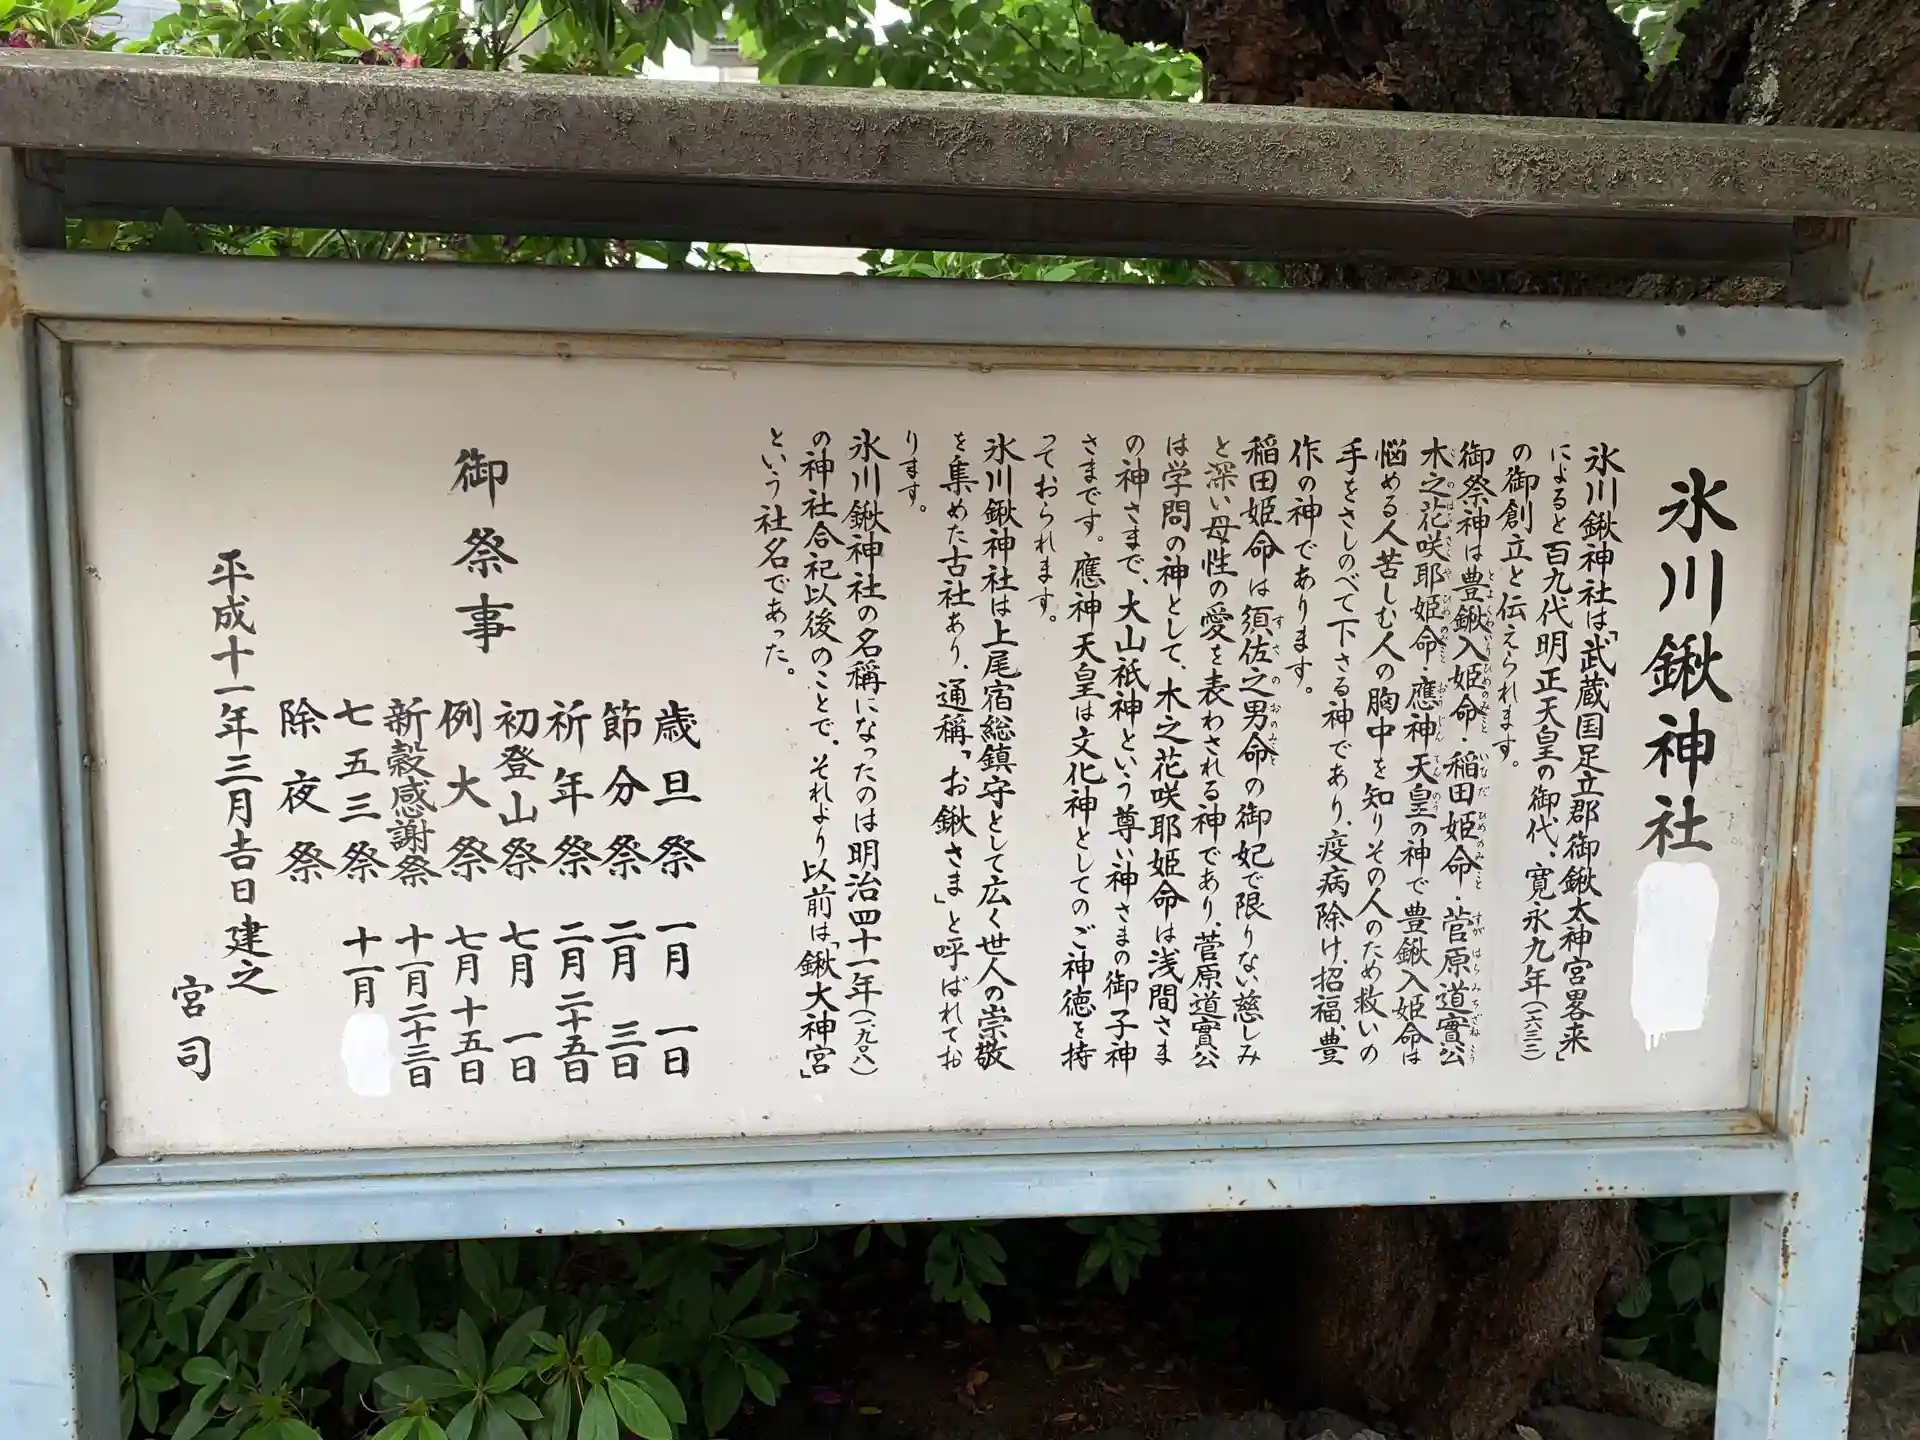 氷川鍬神社
氷川鍬神社は「武蔵国足立郡御鍬太神宮畧来」
によると百九代明正天皇の御代、寛永九年(一六三二)
の御創立と伝えられます。
御祭神は豊鍬入姫命・稲田姫命・菅原道實公
木之花咲耶姫命・應神天皇の神で豊鍬入姫命は
悩める人苦しむ人の胸中を知りその人のため救いの
手をさしのべて下さる神であり、疫病除け、招福、豊
作の神であります。
稲田姫命は須佐之男命の御妃で限りない慈しみ
と深い母性の愛を表わされる神であり、菅原道實公
は学問の神として、木之花咲耶姫命は浅間さま
の神さまで、大山祇神という尊い神さまの御子神
さまです。應神天皇は文化神としてのご神徳を持
っておられます。
氷川鍬神社は上尾宿総鎮守として広く世人の崇敬
を集めた古社あり、通称「お鍬さま」と呼ばれてお
ります。
氷川鍬神社の名称になったのは明治四十一年(一九〇八)
の神社合祀以後のことで、それより以前は「鍬大神宮」
という社名であった。
御祭事
歳旦祭 一月一日
節分祭 二月三日
祈年祭 二月二十五日
初登山祭 七月一日
例大祭 七月十五日
新穀感謝祭 十一月二十三日
七五三祭 十一月
除夜祭
平成十一年三月吉日建之
宮司